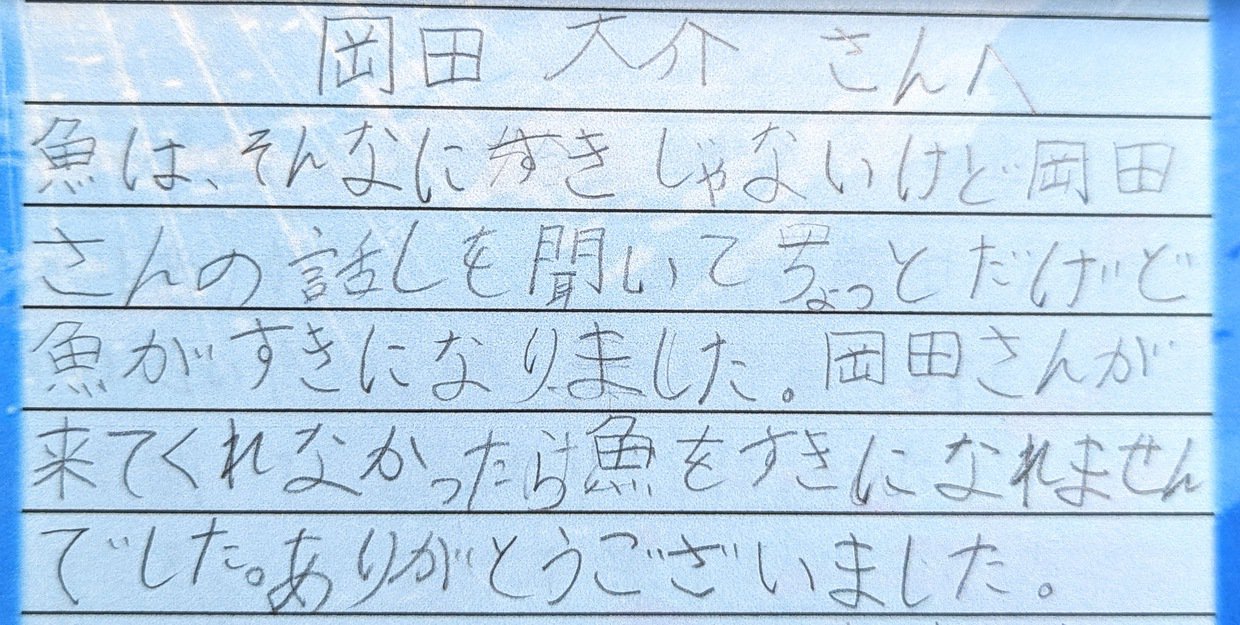 岡田 大介 さんへ
魚は、そんなにすきじゃないけど岡田
さんの話しを聞いてちょっとだけど
魚がすきになりました。岡田さんが
来てくれなかったら魚をすきになれません
でした。ありがとうございました。